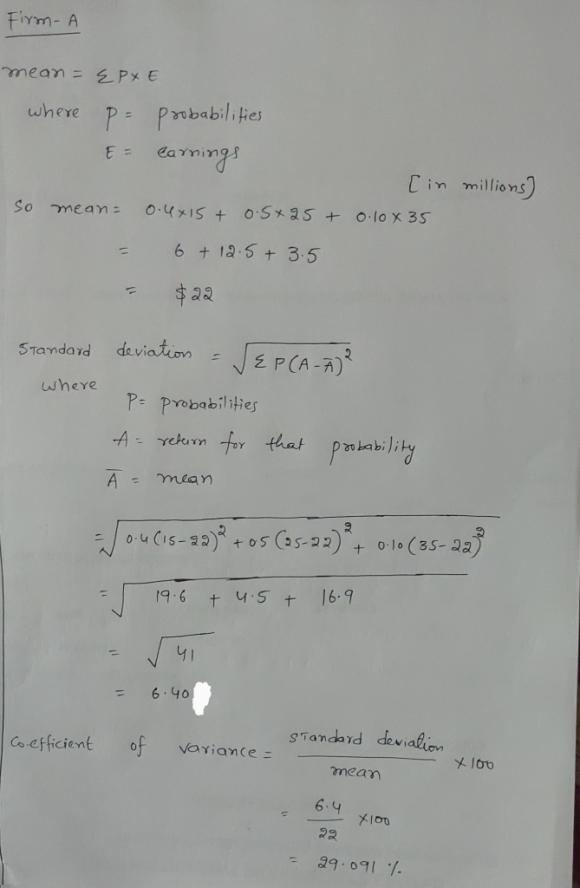 Firm-A
mean = Σ P× E
where P = probabilities
E = earnings
[in millions]
So mean = 0.4×15 + 0.5×25 + 0.10×35
= 6 + 12.5 + 3.5
= $22
Standard deviation = √Σ P(A-Ā)²
where
P= probabilities
A = return for that probability
Ā = mean
= √0.4(15-22)² + 05(25-22)² + 0.10(35-22)²
= √19.6 + 4.5 + 16.9
= √41
= 6.40
Co-efficient of variance = standard deviation / mean ×100
= 6.4 / 22 ×100
= 29.091 %